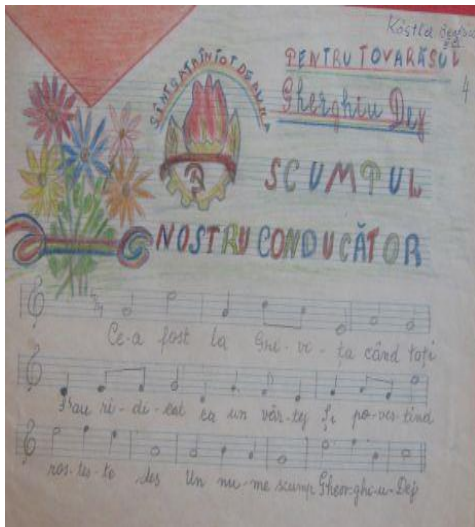 4
PENTRU TOVARĂSUL
Gherghiu Dej
SÎNT GATA ÎNTOTDEAUNA
SCUMPUL
NOSTRU CONDUCĂTOR
Ce-a fost la Gri-vi-ța când toți
S'au ri-di-cat ca un vâr-tej Și po-ves-tind
ros-tu-te des Un nu-me scump Gheor-ghi-u-Dej